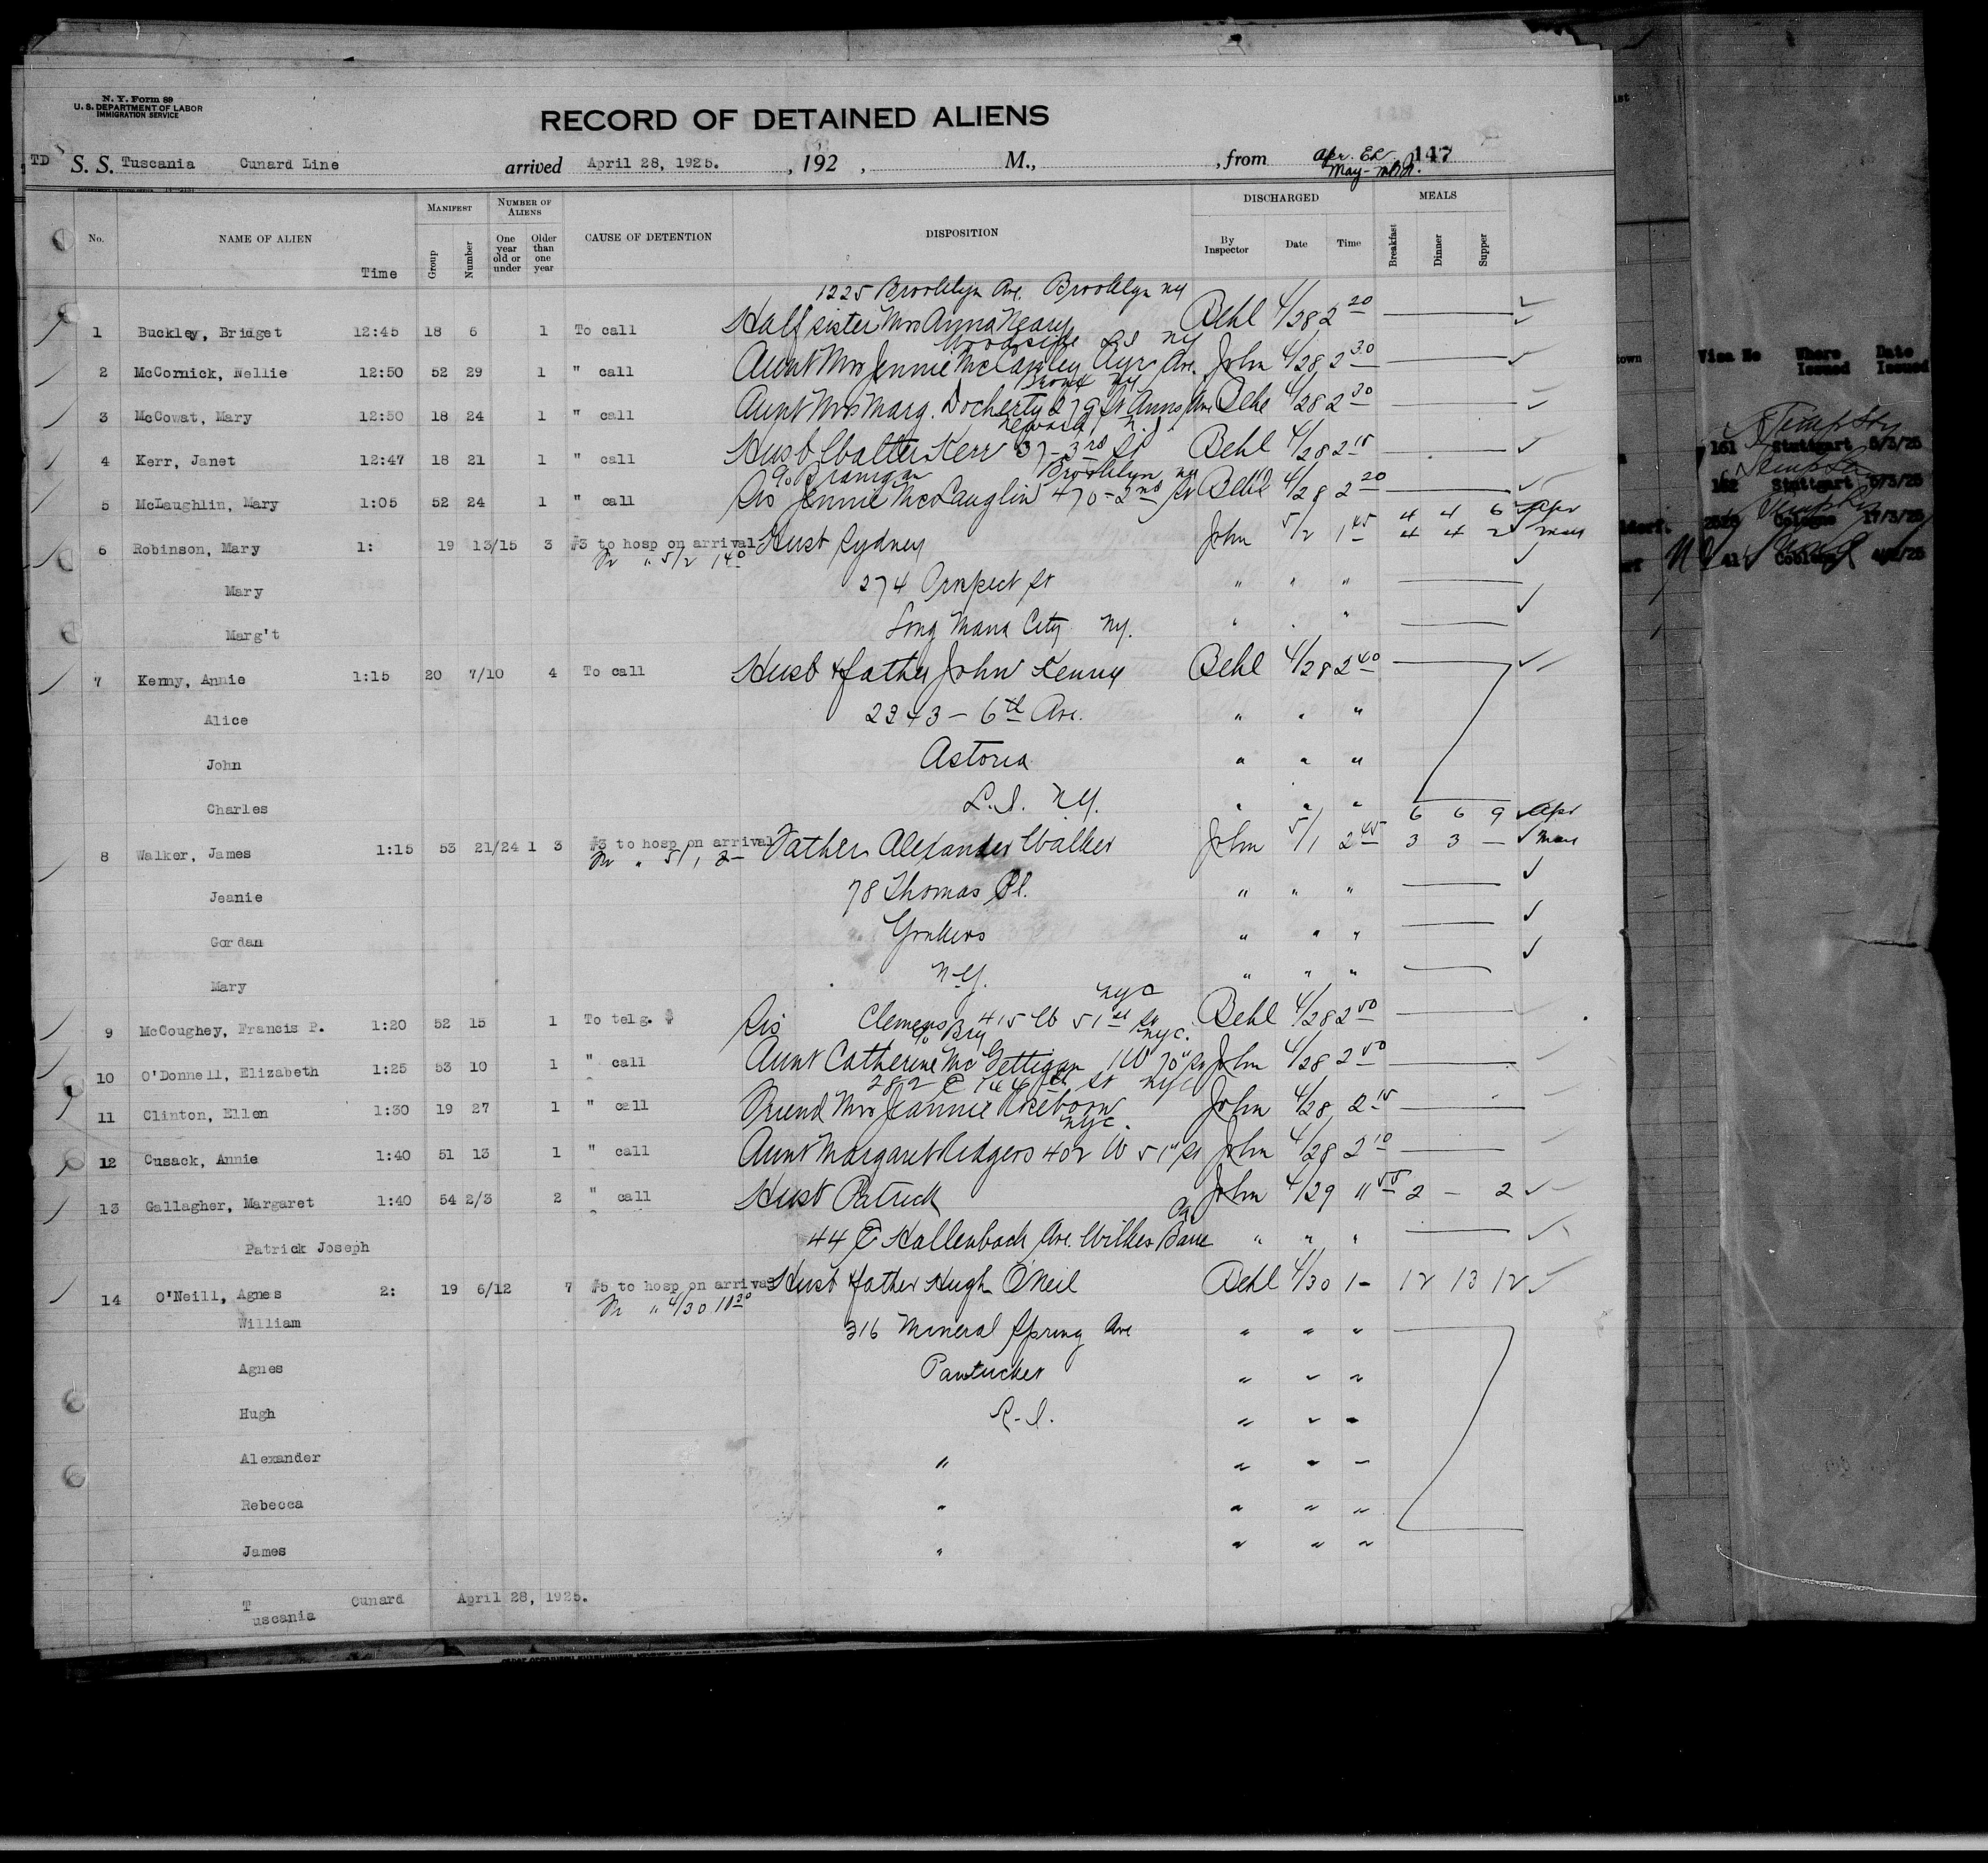 N. Y. Form 89
U. S. DEPARTMENT OF LABOR
IMMIGRATION SERVICE
RECORD OF DETAINED ALIENS
TD S. S. Tuscania Cunard Line arrived April 28, 1925. , 192 , M., , from Apr. 147
May-
No. NAME OF ALIEN Time MANIFEST Group Number NUMBER OF ALIENS One year old or under Older than one year CAUSE OF DETENTION DISPOSITION DISCHARGED By Inspector Date Time MEALS Breakfast Dinner Supper
1225 Brooklyn Ave. Brooklyn NY
1 Buckley, Bridget 12:45 18 6 1 To call Half sister Mrs Anna Neary Behl 4/28 2 20
Woodside L I NY
2 McCormick, Nellie 12:50 52 29 1 " call Aunt Mrs Jennie McCauley Ave. John 4/28 2 30
Bronx NY
3 McCowat, Mary 12:50 18 24 1 " call Aunt Mrs Marg. Docherty 279 St Anns Ave Behl 4/28 2 30
Newark N.J.
4 Kerr, Janet 12:47 18 21 1 " call Husb Walter Kerr 37-3rd St Behl 4/28 2 15
Brooklyn NY
5 McLaughlin, Mary 1:05 52 24 1 " call Sis Jennie McLauglin 470-2nd St Behl 4/28 2 20
4 4 6 Apr
6 Robinson, Mary 1: 19 13/15 3 #3 to hosp on arrival Husb Sydney John 5/2 1 45 4 4 2 may
" 5/2 1 40
Mary 274 Prospect St " " "
Marg't Long City NY. " " "
7 Kenny, Annie 1:15 20 7/10 4 To call Husb & father John Kenny Behl 4/28 2 40
Alice 2343 - 6th Ave. " " "
John Astoria " " "
Charles L.I. NY. " " "
6 6 9 Apr
8 Walker, James 1:15 53 21/24 1 3 #3 to hosp on arrival Father Alexander Walker John 5/1 2 45 3 3 - may
" 5/1, 2-
Jeanie 78 Thomas Pl. " " "
Gordan Yonkers " " "
Mary N.Y. " " "
NYC
9 McCoughey, Francis P. 1:20 52 15 1 To telg. $ Sis Clemens 415 W 51st St Behl 4/28 2 50
NYC.
10 O'Donnell, Elizabeth 1:25 53 10 1 " call Aunt Catherine McGettigan 1 W 70" St John 4/28 2 50
2812 E 144 St NYC
11 Clinton, Ellen 1:30 19 27 1 " call Friend Mrs John 4/28 2 15
NYC.
12 Cusack, Annie 1:40 51 13 1 " call Aunt Margaret Redgers 402 W 51" St John 4/28 2 10
13 Gallagher, Margaret 1:40 54 2/3 2 " call Husb Patrick John 4/29 11 55 2 - 2
Pa
Patrick Joseph 44 E Hallenback Ave. Wilkes Barre " " "
14 O'Neill, Agnes 2: 19 6/12 7 #5 to hosp on arrival Husb & father Hugh O'Neil Behl 4/30 1- 12 13 12
" 4/30 11 30
William 316 Mineral Spring Ave " " "
Agnes Pawtucket " " "
Hugh R.I. " " "
Alexander " " " "
Rebecca " " " "
James " " " "
Tuscania Cunard April 28, 1925.
Visa No Where Issued Date Issued
161 Stuttgart 5/3/25
162 Stuttgart 5/3/25
Cologne 17/3/25
41 Coblenz